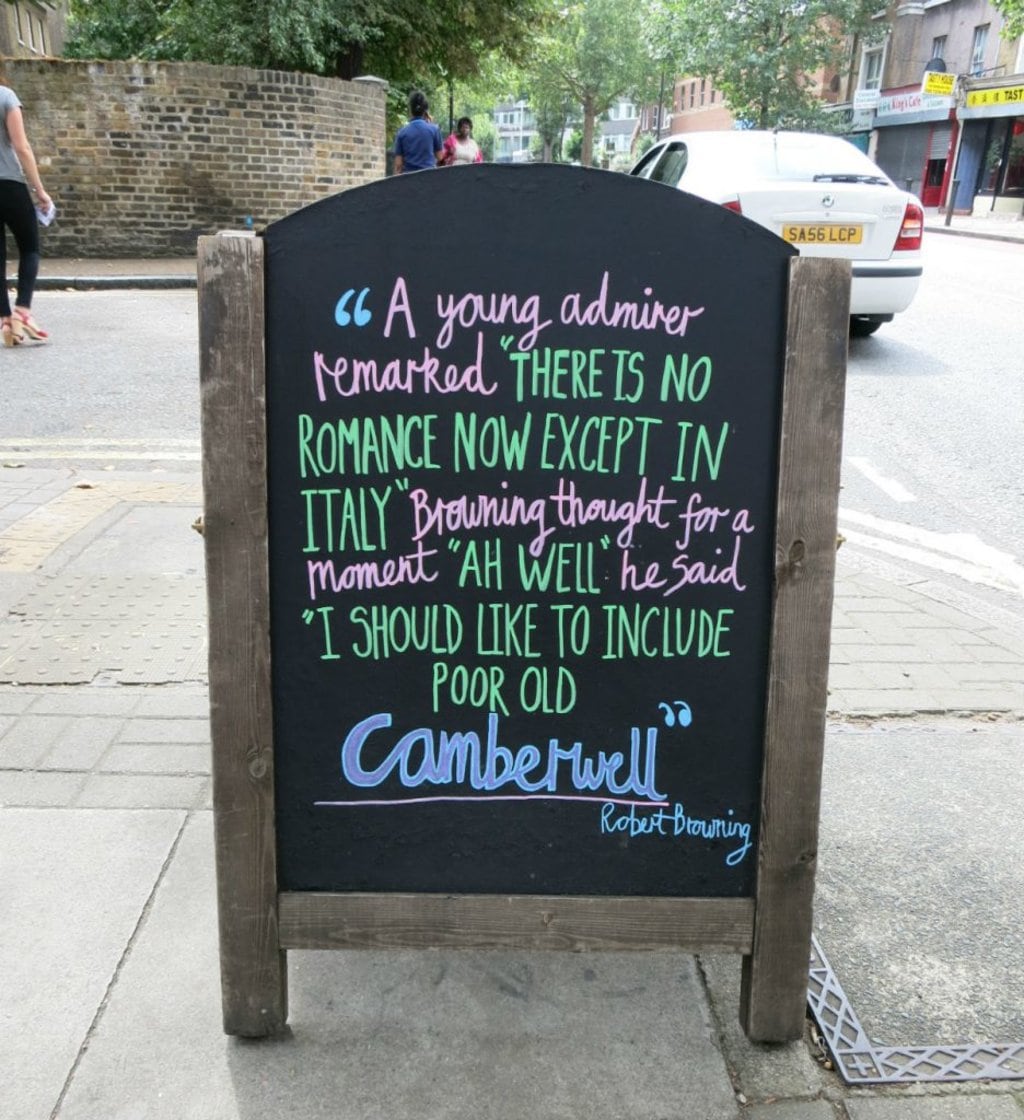 “ A young admirer
remarked "THERE IS NO
ROMANCE NOW EXCEPT IN
ITALY" Browning thought for a
moment "AH WELL" he said
"I SHOULD LIKE TO INCLUDE
POOR OLD
Camberwell ”
Robert Browning
SA56 LCP
King's Cafe
TASTY HOUSE
TAST